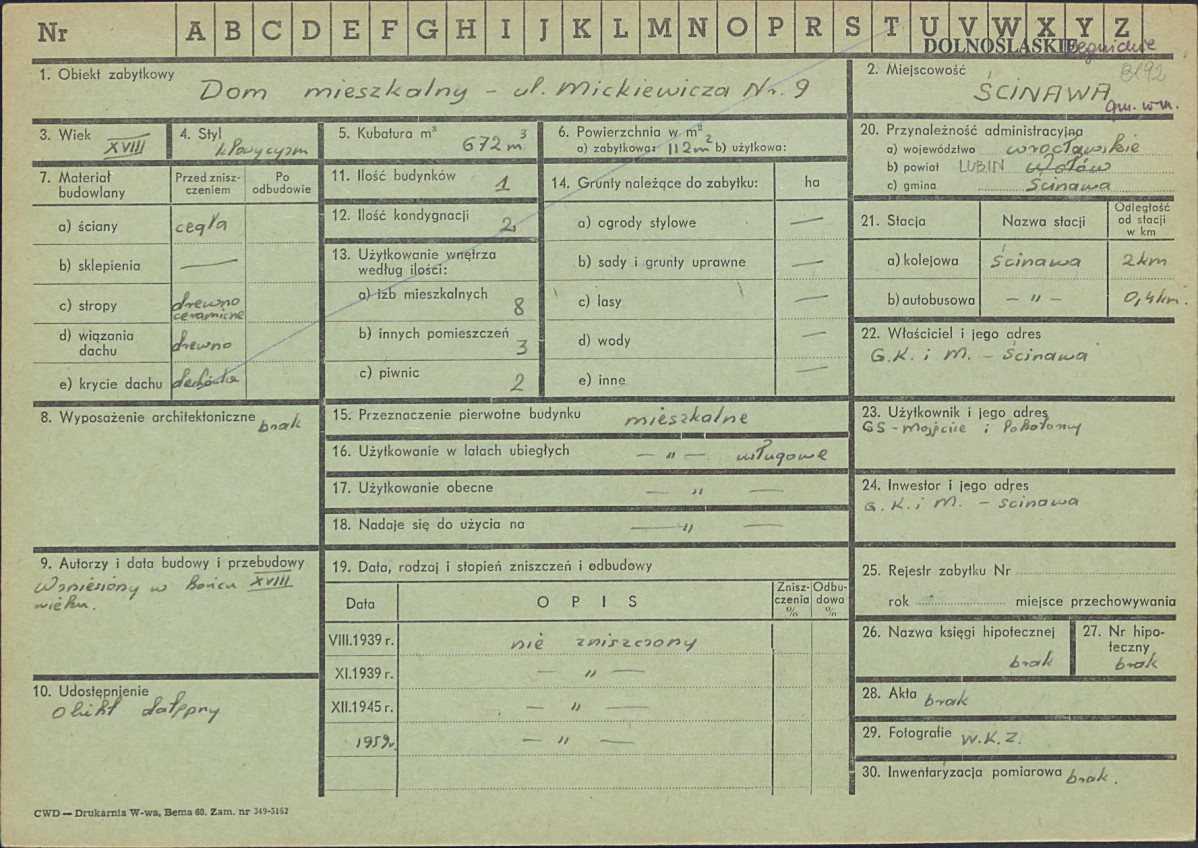 Nr A B C D E F G H I J K L M N O P R S T U V W X Y Z
DOLNOŚLĄSKIE
8192
1. Obiekt zabytkowy
Dom mieszkalny - ul. Mickiewicza Nr. 9
2. Miejscowość
ŚCINAWA
gm. w m.
3. Wiek
XVIII
4. Styl
klasycyzm
5. Kubatura m³
672 m³
6. Powierzchnia w m²
a) zabytkowa: 112 m² b) użytkowa:
7. Materiał budowlany
Przed zniszczeniem
Po odbudowie
a) ściany cegła
b) sklepienia —
c) stropy drewno
ceramiczne
d) wiązania dachu drewno
e) krycie dachu dachówka
8. Wyposażenie architektoniczne brak
9. Autorzy i data budowy i przebudowy
Wzniesiony w końcu XVIII
wieku.
10. Udostępnienie
Obiekt dostępny
11. Ilość budynków 1
12. Ilość kondygnacji 2
13. Użytkowanie wnętrza
według ilości:
a) izb mieszkalnych 8
b) innych pomieszczeń 3
c) piwnic 2
14. Grunty należące do zabytku: ha
a) ogrody stylowe —
b) sady i grunty uprawne —
c) lasy —
d) wody —
e) inne —
15. Przeznaczenie pierwotne budynku mieszkalne
16. Użytkowanie w latach ubiegłych — " — usługowe
17. Użytkowanie obecne — " —
18. Nadaje się do użycia na — " —
19. Data, rodzaj i stopień zniszczeń i odbudowy
Data
O P I S
Zniszczenia %
Odbudowa %
VIII.1939 r. nie zniszczony
XI.1939 r. — " —
XII.1945 r. — " —
1959r. — " —
20. Przynależność administracyjna
a) województwo wrocławskie
b) powiat LUBIN Wołów
c) gmina Ścinawa
21. Stacja
Nazwa stacji
Odległość
od stacji
w km
a) kolejowa Ścinawa 2 km
b) autobusowa — " — 0,4 km.
22. Właściciel i jego adres
G.K. i M. - Ścinawa
23. Użytkownik i jego adres
24. Inwestor i jego adres
G.K. i M. - Ścinawa
25. Rejestr zabytku Nr
rok miejsce przechowywania
26. Nazwa księgi hipotecznej
brak
27. Nr hipoteczny
brak
28. Akta brak
29. Fotografie W.K.Z.
30. Inwentaryzacja pomiarowa brak.
CWD — Drukarnia W-wa, Bema 60. Zam. nr 349-5162